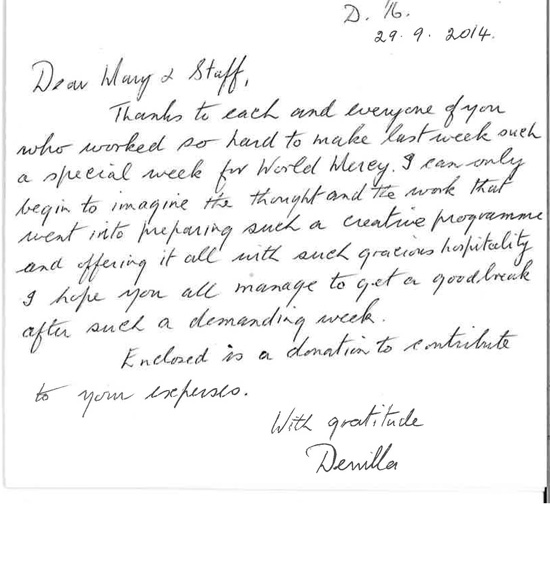 D. 16.
29.9.2014.
Dear Mary & Staff,
Thanks to each and everyone of you
who worked so hard to make last week such
a special week for World Mercy. I can only
begin to imagine the thought and the work that
went into preparing such a creative programme
and offering it all with such gracious hospitality
I hope you all manage to get a good break
after such a demanding week.
Enclosed is a donation to contribute
to your expenses.
With gratitude